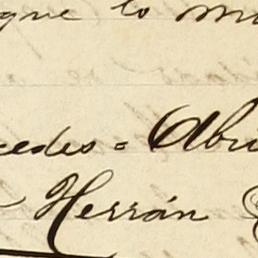 que lo m
cedes = Abri
Herrán